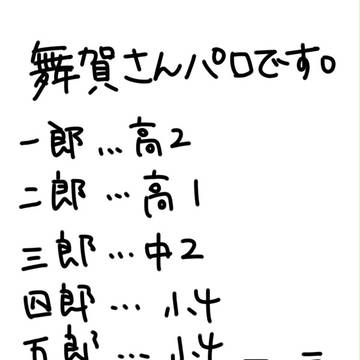 舞賀さんパロです。
一郎…高2
二郎…高1
三郎…中2
四郎…小4
五郎…小4